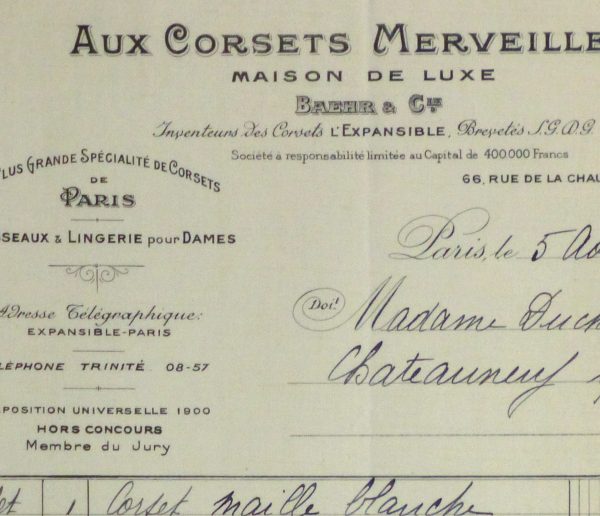 AUX CORSETS MERVEILLE
MAISON DE LUXE
BAEHR & CIE
Inventeurs des Corsets L'EXPANSIBLE, Brevetés S.G.D.G.
Société à responsabilité limitée au Capital de 400.000 Francs
66, RUE DE LA CHAU
LUS GRANDE SPÉCIALITÉ DE CORSETS
DE
PARIS
SSEAUX & LINGERIE POUR DAMES
Adresse Télégraphique:
EXPANSIBLE-PARIS
LÉPHONE TRINITÉ 08-57
POSITION UNIVERSELLE 1900
HORS CONCOURS
Membre du Jury
Paris, le 5 Ao
Doit
Madame Duch
Chateauneuf
1 Corset maille blanche